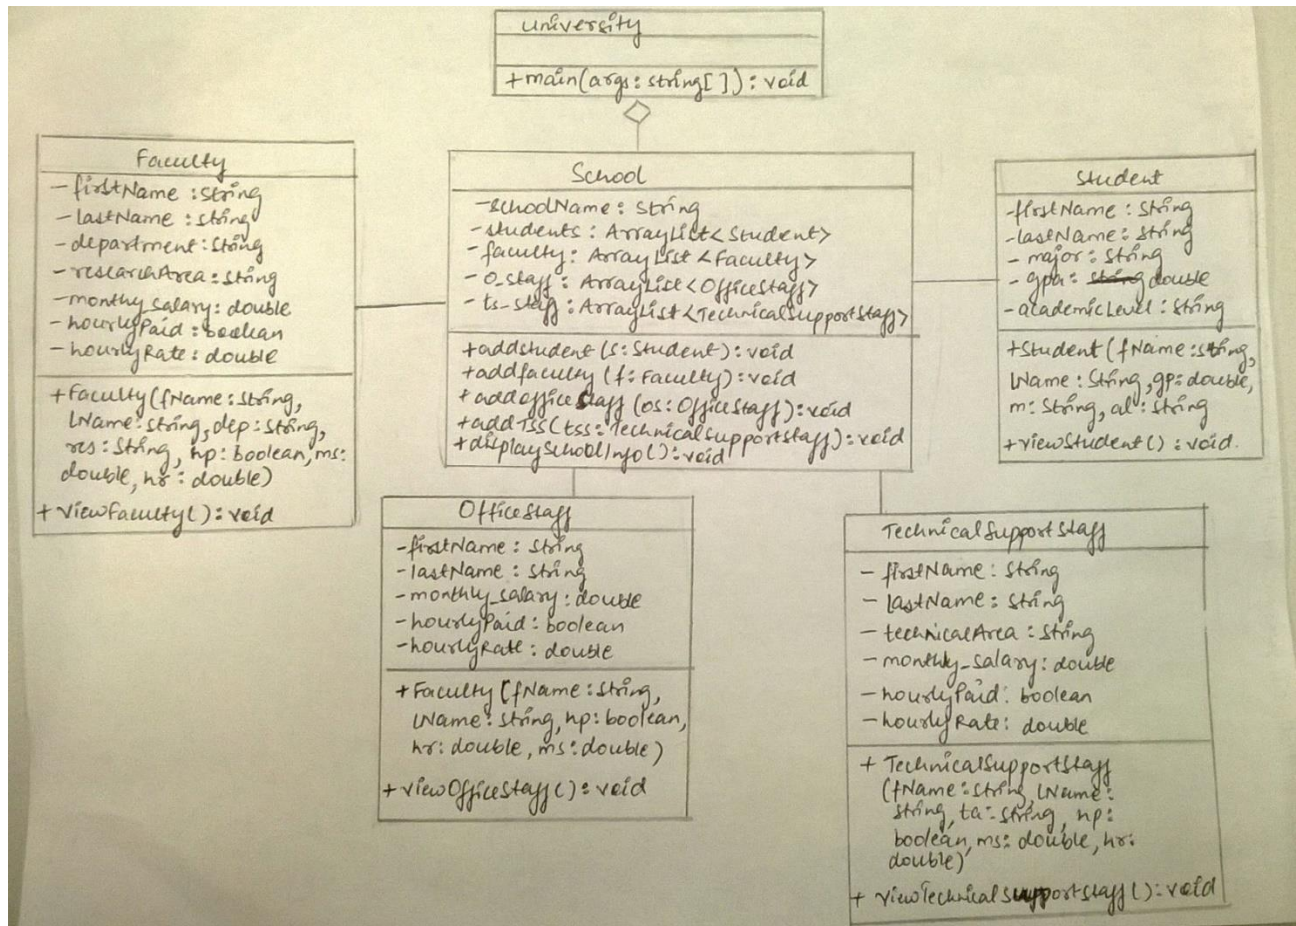 University
+main(args: string[]): void
Faculty
- firstName : String
- lastName : String
- department : String
- researchArea : String
- monthy_salary : double
- hourlyPaid : boolean
- hourlyRate : double
+ Faculty(fName : String,
lName : String, dep : String,
res : String, hp : boolean, ms :
double, hr : double)
+ viewFaculty() : void
School
- schoolName : String
- students : ArrayList<Student>
- faculty : ArrayList<Faculty>
- o_staff : ArrayList<OfficeStaff>
- ts_staff : ArrayList<TechnicalSupportStaff>
+ addstudent (s : Student) : void
+ addfaculty (f : Faculty) : void
+ addofficeStaff (os : OfficeStaff) : void
+ addTSS(tss : TechnicalSupportStaff) : void
+ displaySchoolInfo() : void
Student
- firstName : String
- lastName : String
- major : String
- gpa : string double
- academicLevel : String
+ Student (fName : string,
lName : String, gp : double,
m : String, al : String
+ viewStudent() : void.
OfficeStaff
- firstName : String
- lastName : String
- monthly_salary : double
- hourlyPaid : boolean
- hourlyRate : double
+ Faculty (fName : String,
lName : String, hp : boolean,
hr : double, ms : double)
+ viewOfficeStaff() : void
TechnicalSupportStaff
- firstName : String
- lastName : String
- technicalArea : String
- monthly_salary : double
- hourlyPaid : boolean
- hourlyRate : double
+ TechnicalSupportStaff
(fName : String, lName :
String, ta : String, hp :
boolean, ms : double, hr :
double)
+ viewTechnicalSupportStaff() : void